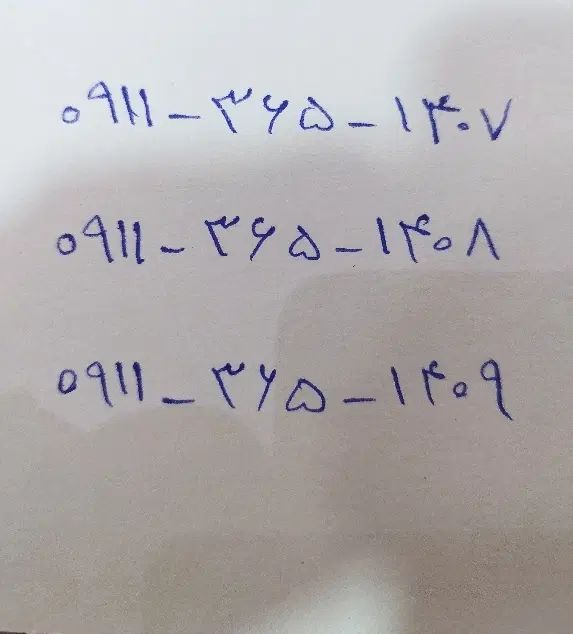 ۰۹۱۱-۳۶۵-۱۴۰۷
۰۹۱۱-۳۶۵-۱۴۰۸
۰۹۱۱-۳۶۵-۱۴۰۹